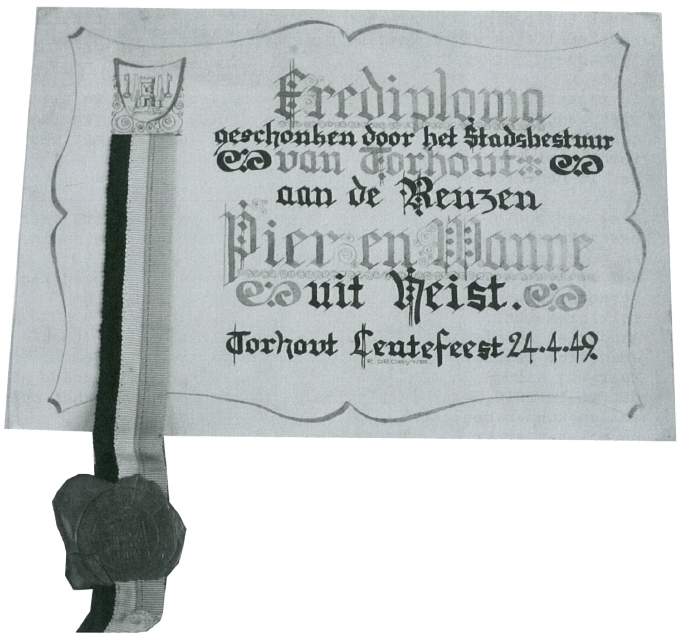 Erediploma
geschonken door het Stadsbestuur
van Torhout
aan de Reuzen
Pier en Wanne
uit Heist.
Torhout Lentefeest 24.4.49.